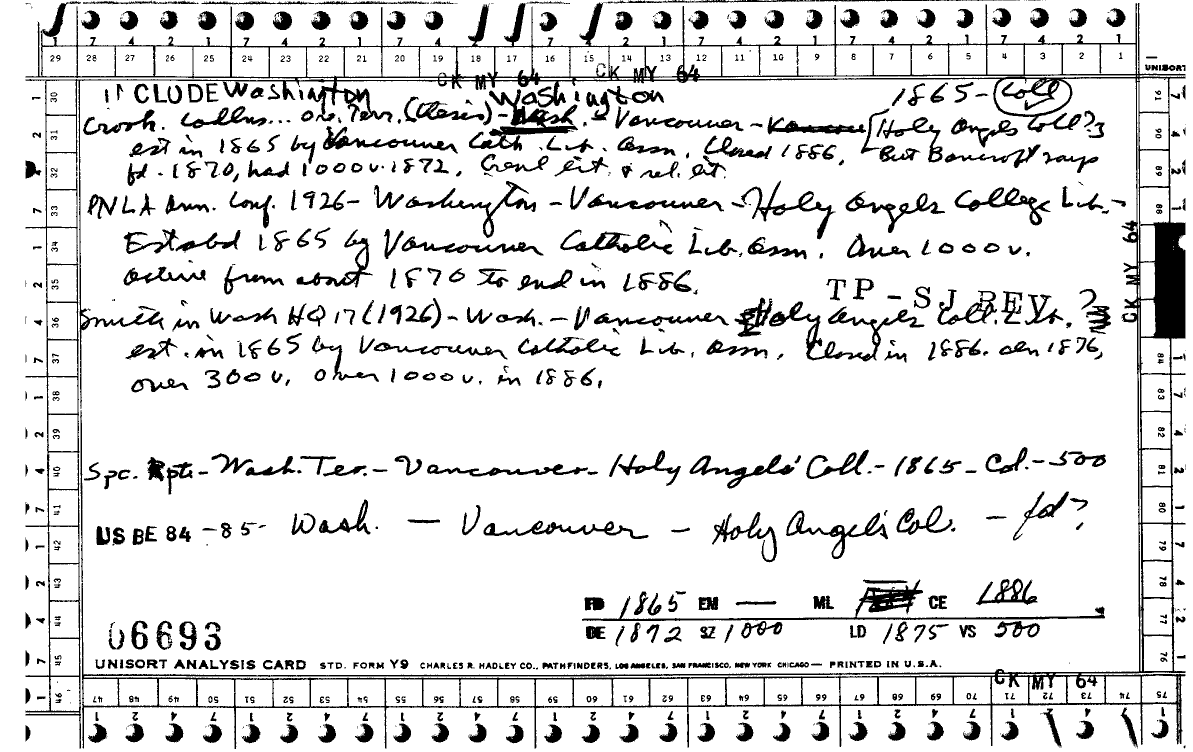 CK MY 64 CK MY 64
INCLUDE Washington Washington 1865- Coll
Crook. Collns... Ore. Terr. (thesis) - Wash. - Vancouver - Holy Angels Coll?
est in 1865 by Vancouver Cath. Lib. Assn. Closed 1886. But Bancroft says
fd. 1870, had 1000 v. 1872, Genl lit. & rel. lit.
PNLA Ann. Conf. 1926 - Washington - Vancouver - Holy Angels College Lib. -
Estabd 1865 by Vancouver Catholic Lib. Assn. Over 1000 v.
Active from about 1870 to end in 1886.
TP - SJ REV ?
CK MY 64
Smith in Wash HQ 17 (1926) - Wash. - Vancouver Holy Angels Coll. Lib.
est. in 1865 by Vancouver Catholic Lib. Assn. Closed in 1886. In 1876,
over 300 v. Over 1000 v. in 1886.
Spc. Rpt. - Wash. Ter. - Vancouver - Holy Angels' Coll. - 1865 - Col. - 500
US BE 84 - 85 - Wash. — Vancouver - Holy Angels Col. - fd?
FD 1865 EM — ML CE 1886
DE 1872 SZ 1000 LD 1875 VS 500
06693
UNISORT ANALYSIS CARD STD. FORM Y9 CHARLES R. HADLEY CO., PATHFINDERS, LOS ANGELES, SAN FRANCISCO, NEW YORK CHICAGO — PRINTED IN U.S.A.
CK MY 64